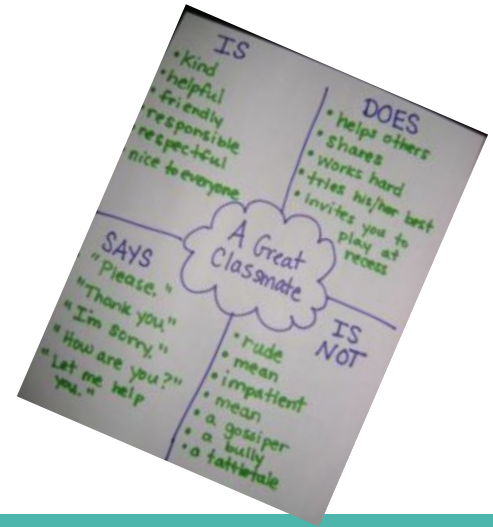 IS
• kind
• helpful
• friendly
• responsible
• respectful
nice to everyone
DOES
• helps others
• shares
• works hard
• tries his/her best
• invites you to
play at
recess
A Great
Classmate
SAYS
"Please."
"Thank you"
"I'm sorry."
"How are you?"
"Let me help
you."
IS
NOT
• rude
• mean
• impatient
• mean
• a gossiper
• a bully
• a tattletale